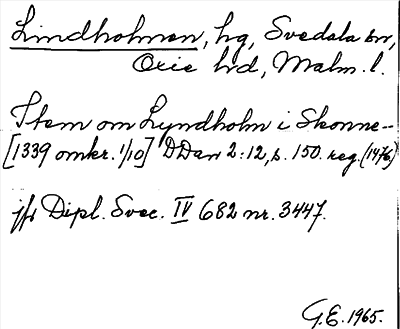 Lindholmen, hg, Svedala sn,
Oxie hd, Malm. l.
Item om Lyndholm i Skonne--
[1339 omkr. 1/10] DDan 2:12, s. 150. reg. (1476)
jfr Dipl. Svec. IV 682 nr. 3447.
G.E. 1965.